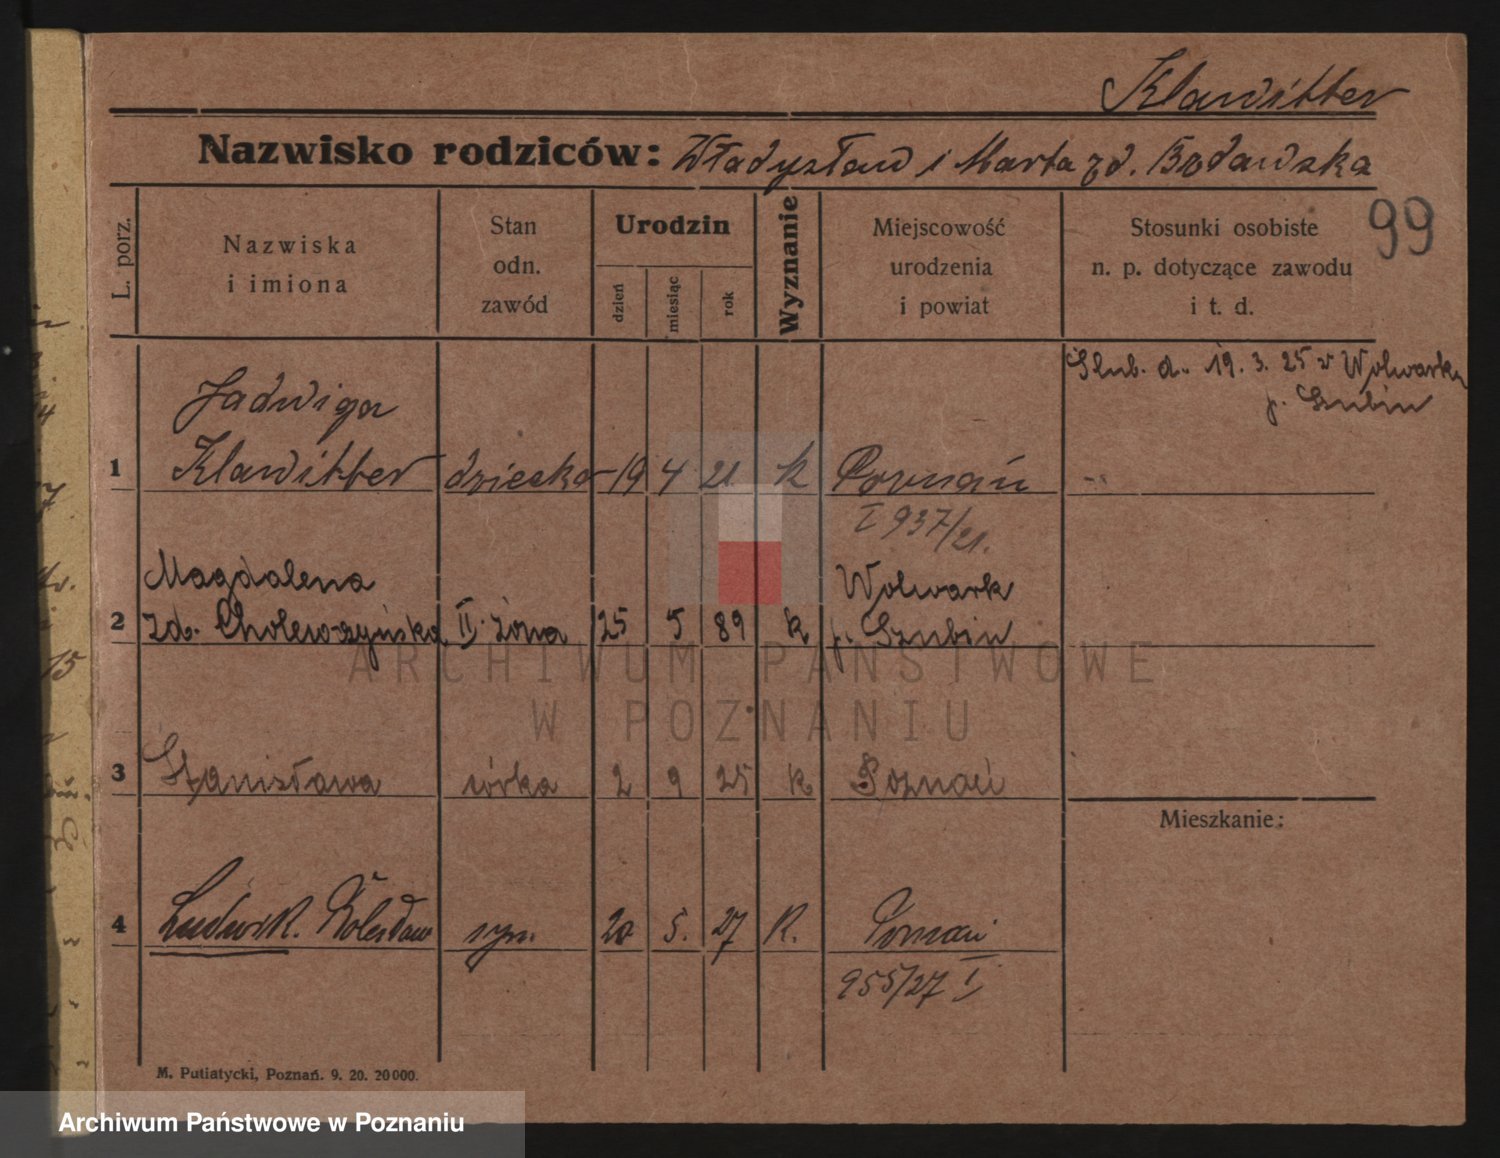 Klawitter
Nazwisko rodziców: Władysław i Marta zd.
99
L. porz.
Nazwiska i imiona
Stan odn. zawód
Urodzin
dzień
miesiąc
rok
Wyznanie
Miejscowość urodzenia i powiat
Stosunki osobiste n. p. dotyczące zawodu i t. d.
Ślub. d. 19. 3. 25 w Wolwarku
p. Szubin
Jadwiga
1 Klawitter dziecko 19 4 21 k Poznań
I 937/21.
Magdalena Wolwark
2 zd. Cholewczyńska II. żona 25 5 89 k p. Szubin
3 Stanisława córka 2 9 25 k Poznań
Mieszkanie:
4 Ludwik. Bolesław syn. 20 5. 27 K. Poznań
955/27 I
M. Putiatycki, Poznań. 9. 20. 20000.
ARCHIWUM PAŃSTWOWE
W POZNANIU
Archiwum Państwowe w Poznaniu